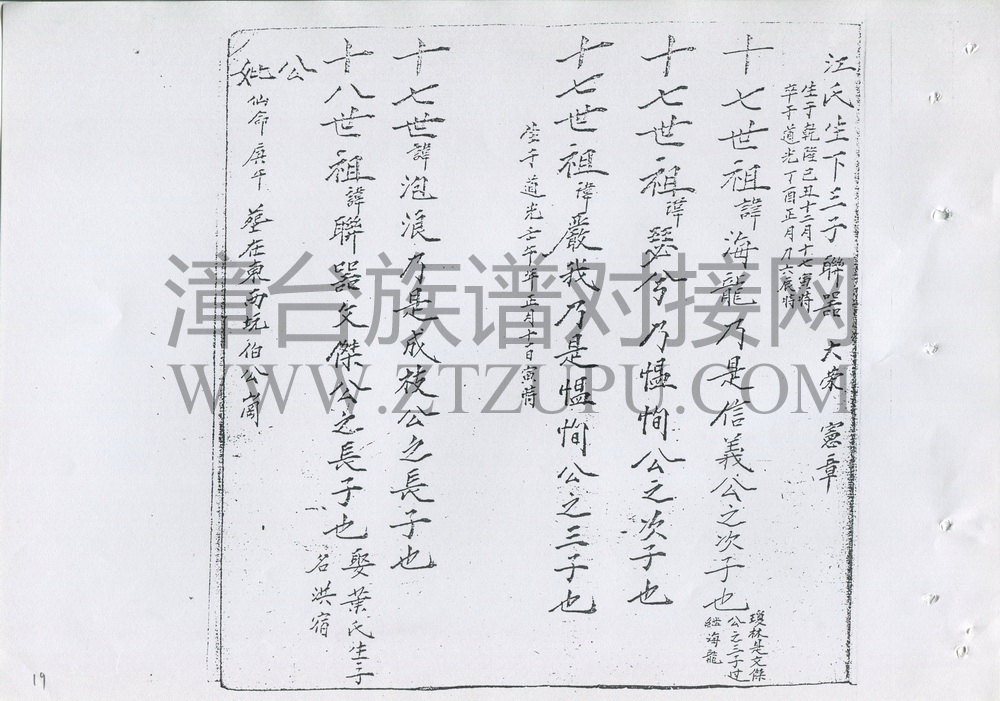 江氏生下三子聯器 大榮 憲章
生于乾隆己丑十二月十七寅時
卒于道光丁酉正月初六辰時
十七世祖諱海龍乃是信義公之次子也
瓊林是文傑
公之三子过
继海龍
十七世祖諱瑟兮乃慍恂公之次子也
十七世祖諱嚴我乃是慍恂公之三子也
生于道光壬午年正月十一日寅時
十七世諱泡浪乃是成枝公之長子也
十八世祖諱聯器文傑公之長子也
娶葉氏生子
名洪宿
公
妣
仙命庚午 墓在東西坑伯公崗
漳台族谱对接网
WWW.ZTZUPU.COM
19